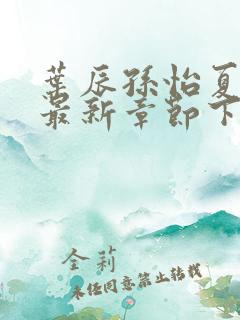 葉辰孫怡夏
最新章節下
金莉
未经同意禁止转载